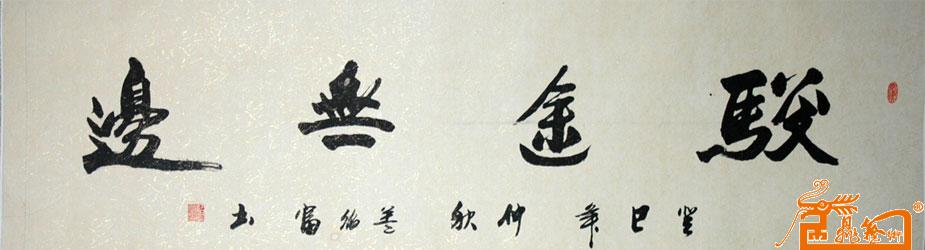 駿途無邊
癸巳年仲秋姜绍富书